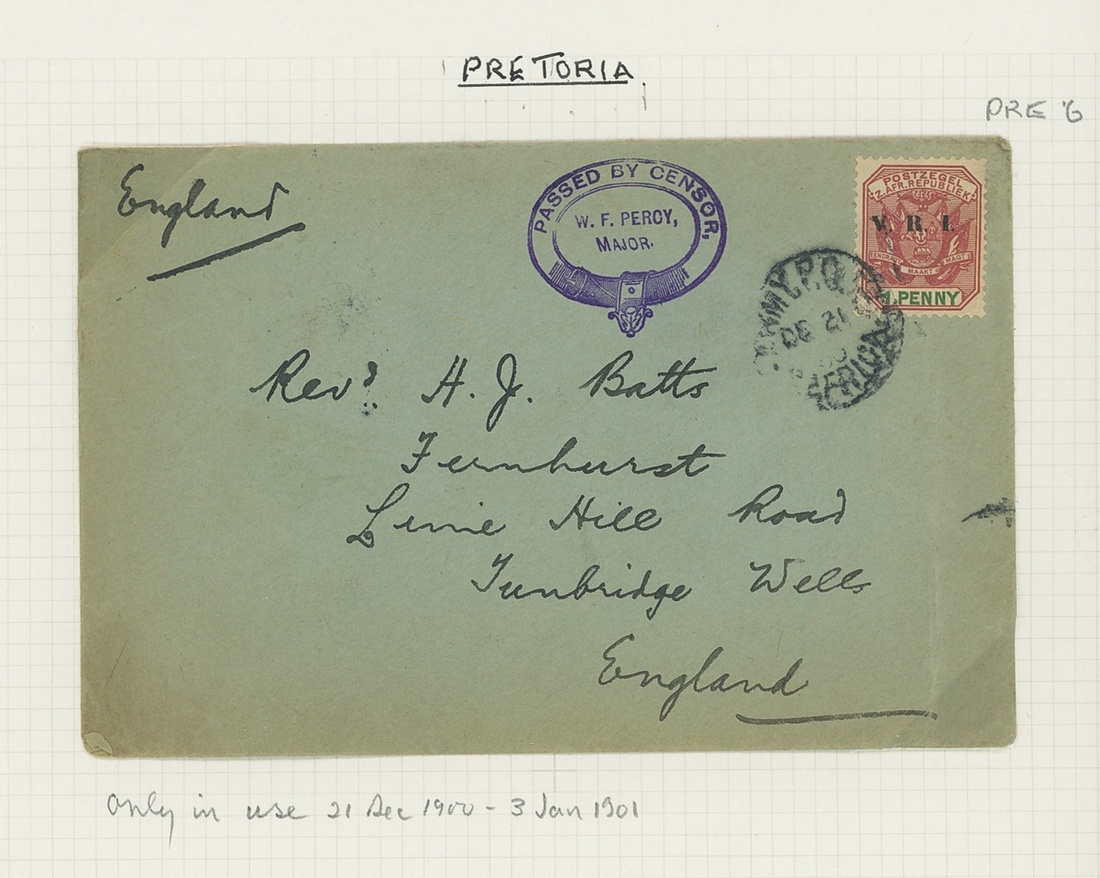 PRETORIA
PRE 6
England
PASSED BY CENSOR,
W. F. PERCY,
MAJOR.
POSTZEGEL
Z. AFR. REPUBLIEK
V. R. I.
EENDRAGT MAAKT MAGT
1 PENNY
ARMY P.O.
DE 21
00
S. AFRICA
Revd H. J. Batts
Fernhurst
Lime Hill Road
Tunbridge Wells
England
Only in use 21 Dec 1900 - 3 Jan 1901